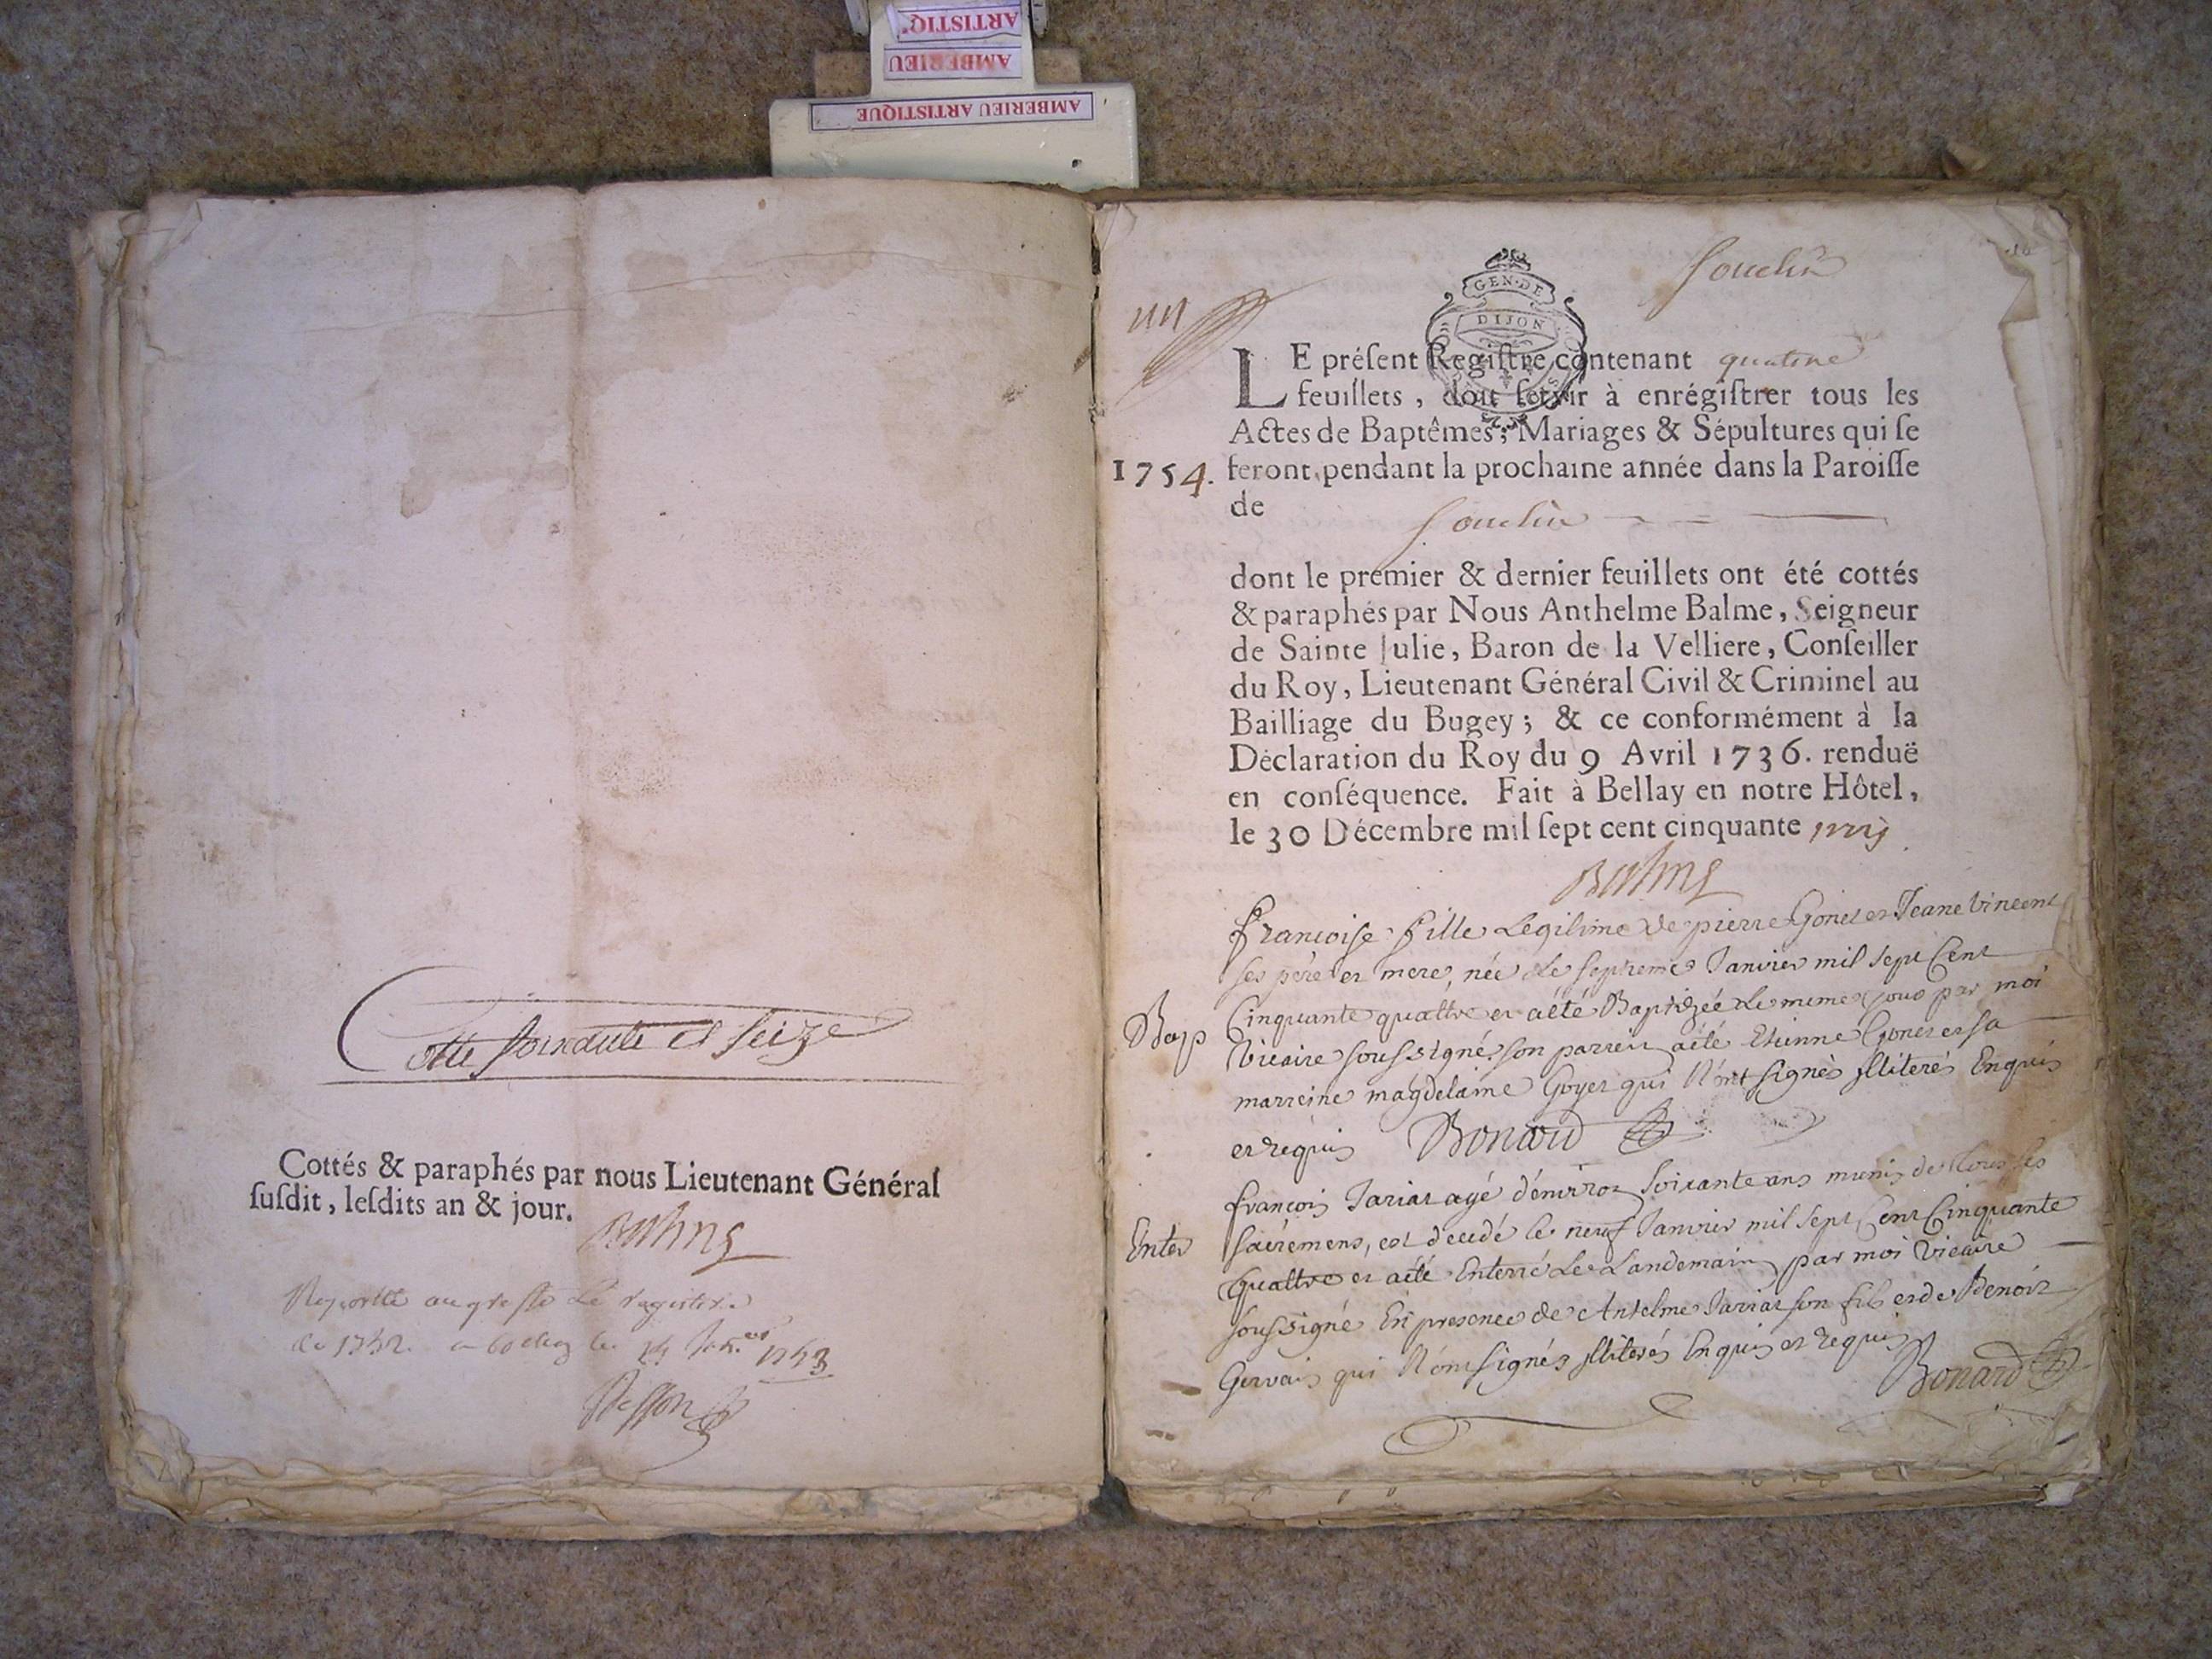 ARTISTIQ
AMBERIEU
AMBERIEU ARTISTIQUE
Cotte soixante et seize
Cottés & paraphés par nous Lieutenant Général
ſuſdit, leſdits an & jour.
Balme
Reporté au greffe le registre
de 1752. a le 1753
Souclin
GEN·DE
DIJON
LE préſent Regiſtre contenant quatre
feuillets, doit ſervir à enrégiſtrer tous les
Actes de Baptêmes, Mariages & Sépultures qui ſe
1754. feront pendant la prochaine année dans la Paroiſſe
de Souclin
dont le premier & dernier feuillets ont été cottés
& paraphés par Nous Anthelme Balme, Seigneur
de Sainte Julie, Baron de la Velliere, Conſeiller
du Roy, Lieutenant Général Civil & Criminel au
Bailliage du Bugey; & ce conformément à la
Déclaration du Roy du 9 Avril 1736. renduë
en conſéquence. Fait à Bellay en notre Hôtel,
le 30 Décembre mil ſept cent cinquante trois
Balme
francoise fille Legitime de pierre Gonet et Jeane Vincent
ses pere et mere, née Le septieme Janvier mil sept Cent
Bap Cinquante quattre et aété Baptizée Le meme jour par moi
Vicaire soussigné, son parrein aété Etienne Gonet et sa
marreine magdelaine Goyet qui N'ont signés illiterés Enquis
et requis Bonard
françois Jariat agé d'environ soixante ans munis de tous ses
Enter sacremens, est decedé le neuf Janvier mil sept Cent Cinquante
Quattre et aété Enterré Le Landemain par moi Vicaire
soussigné En presence de Antelme Jariat son fils et de Benoit
Gervais qui N'ont signés illiterés Enquis et requis
Bonard